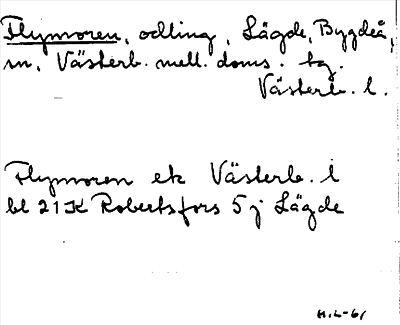 Flymoren, odling, Lägde, Bygdeå,
sn, Västerb. mell. doms. tg.
Västerb. l.
Flymoren ek Västerb. l
bl 21K Robertsfors 5j Lägde
H.L-61